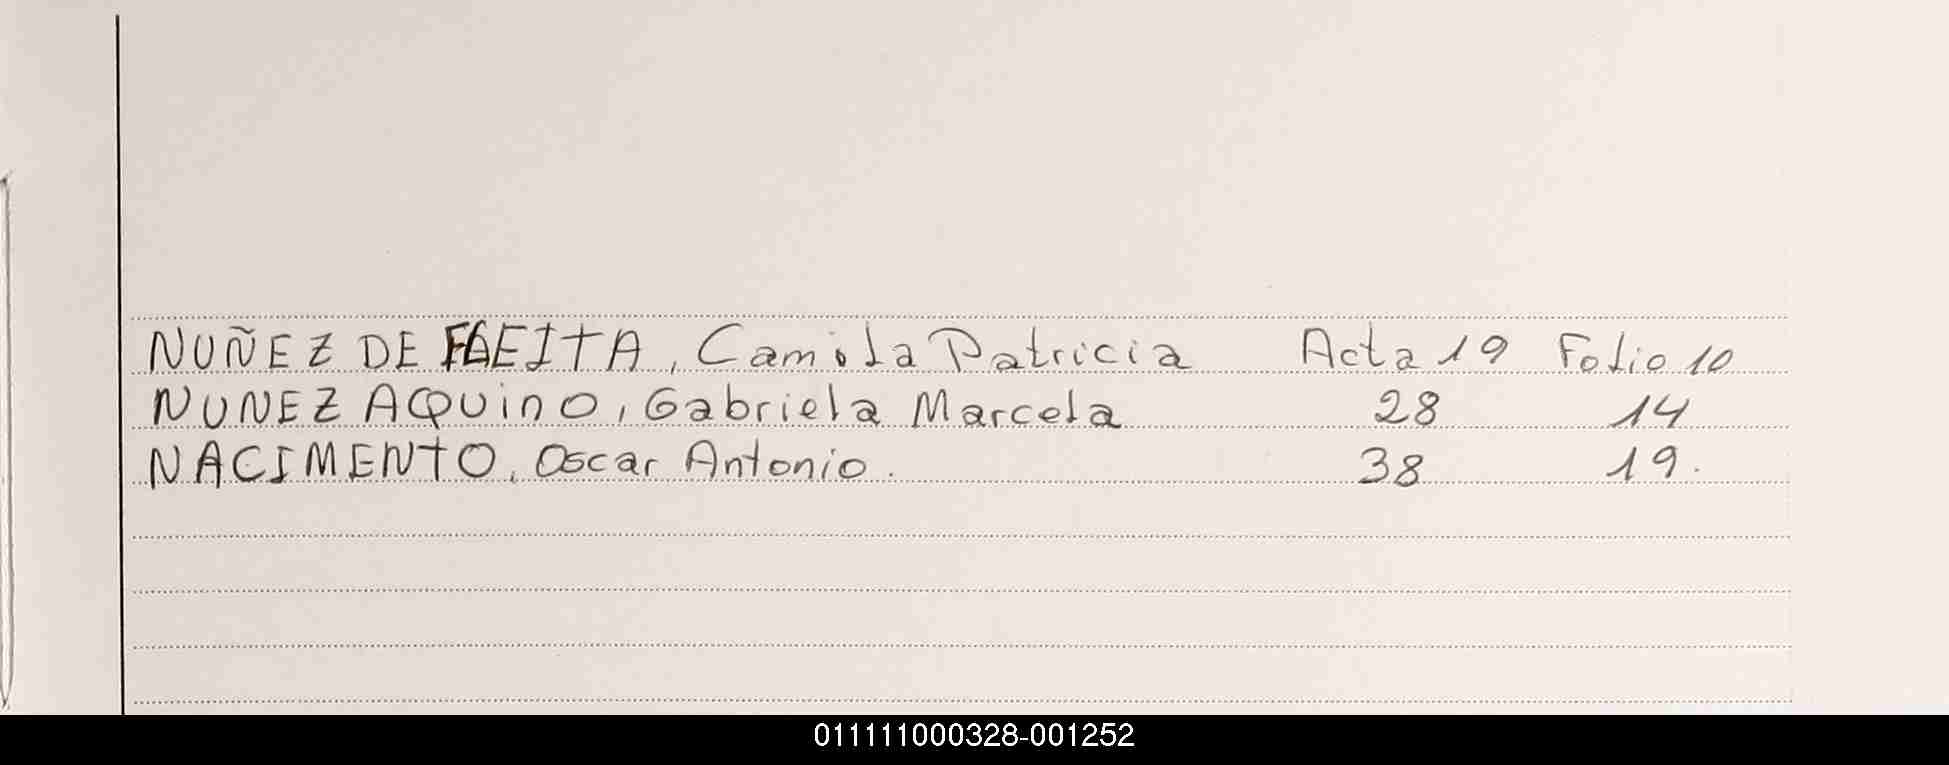 NUÑEZ DE FLEITA, Camila Patricia Acta 19 Folio 10
NUNEZ AQUINO, Gabriela Marcela 28 14
NACIMENTO, Oscar Antonio. 38 19.
011111000328-001252